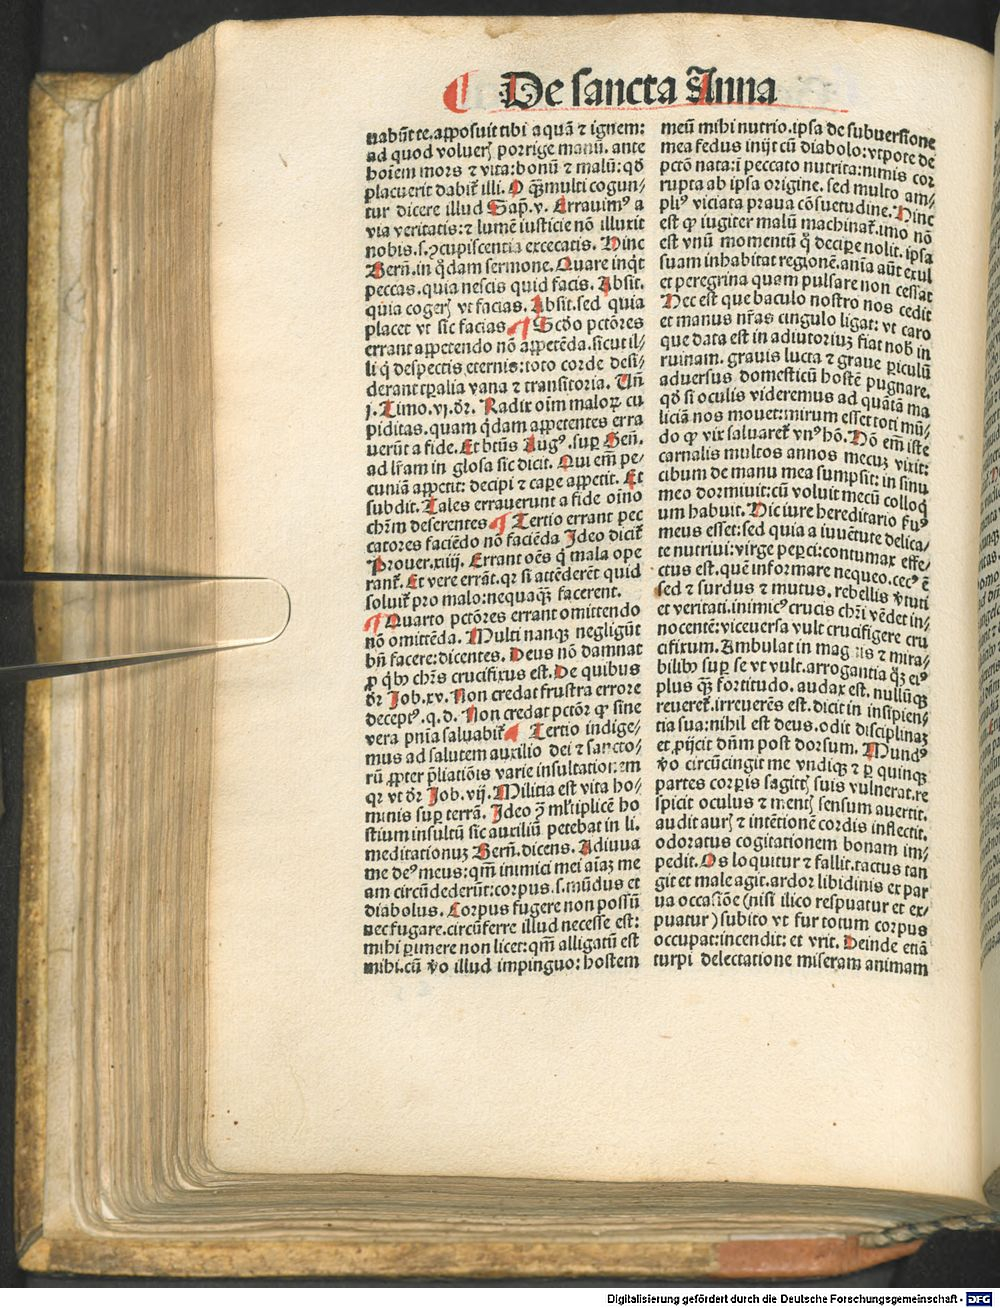 De sancta Anna
uabūt te. apposuit tibi aquā ⁊ ignem:
ad quod voluerꝭ porrige manū. ante
hoīem mors ⁊ vita: bonū ⁊ malū: qđ
placuerit dabit̄ illi. O q̄ꝫ multi cogun⸗
tur dicere illud Sap̄. v. Errauimꝰ a
via veritatis: ⁊ lumē iusticie nō illuxit
nobis. s. ꝯcupiscentia excecatis. Hinc
Bern̄. in q̇dam sermone. Quare inq̇t
peccas. quia nescis quid facis. Absit.
quia cogerꝭ vt facias. Absit. sed quia
placet vt sic facias ¶ Scđo pctōres
errant appetendo nō appetēda. sicut il⸗
li q̇ despectis eternis: toto corde desi⸗
derant tꝑalia vana ⁊ transitoria. Vn̄
j. Timo. vj. dr̄. Radix oīm maloꝝ cu
piditas. quam q̇dam appetentes erra
uerūt a fide. Et btūs Augꝰ. suꝑ Gen̄.
ad lr̄am in glosa sic dicit. Qui em̄ pe⸗
cuniā appetit: decipi ⁊ caꝑe appetit. Et
subdit. Tales errauerunt a fide oīno
chr̄m deserentes ¶ Tertio errant pec
catores faciēdo nō faciēda Ideo dicit̄
Prouer. xiiij. Errant oēs q̇ mala ope
rant̄. Et vere errāt. qꝛ si attēderēt quid
soluit̄ pro malo: nequaq̄ꝫ facerent.
¶ Quarto pctōres errant omittendo
nō omittēda. Multi nanqꝫ negligūt
bn̄ facere: dicentes. Deus nō damnat
ꝓ qͥbꝰ chr̄s crucifixus est. De quibus
dr̄ Job. xv. Non credat frustra errore
deceptꝰ. q. d. Non credat pctōr ꝙ sine
vera pn̄ia saluabit̄ ¶ Tertio indige⸗
mus ad salutem auxilio dei ⁊ sancto⸗
rū ꝓpter p̄liatiōis varie insultationem
qꝛ vt dr̄ Job. vij. Militia est vita ho⸗
minis suꝑ terrā. Ideo ꝯ̄ ml̓tiplicē ho
stium insultū sic auxiliū petebat in li.
meditationuꝫ Bern̄. dicens. Adiuua
me deꝰ meus: qm̄ inimici mei aīaꝫ me
am circūdederūt: corpus. s. mūdus et
diabolus. Corpus fugere non possū
nec fugare. circūferre illud necesse est:
mihi ꝑimere non licet: qm̄ alligatū est
mihi. cū v̊o illud impinguo: hostem
meū mihi nutrio. ipsa de subuersione
mea fedus inijt cū diabolo: vtpote de
pctō nata: ī peccato nutrita: nimis cor
rupta ab ipsa origine. sed multo am⸗
pliꝰ viciata praua cōsuetudine. Hinc
est ꝙ iugiter malū machinat̄. imo nō
est vnū momentū q̊ deciꝑe nolit. ipsa
suam inhabitat regionē. aīa aūt exul
et peregrina quam pulsare non cessat
Hec est que baculo nostro nos cedit
et manus nr̄as cingulo ligat: vt caro
que data est in adiutoriuꝫ fiat nob̄ in
ruinam. grauis lucta ⁊ graue ꝑiculū
aduersus domesticū hostē pugnare.
qđ si oculis videremus ad quātā ma
liciā nos mouet: mirum esset toti mū⸗
do ꝙ vix saluaret̄ vnꝰ hō. Nō em̄ iste
carnalis multos annos mecuꝫ vixit:
cibum de manu mea sumpsit: in sinu
meo dormiuit: cū voluit mecū colloq̇
um habuit. Hic iure hereditario ẜuꝰ
meus esset: sed quia a iuuētute delica⸗
te nutriui: virge peꝑci: contumax effe⸗
ctus est. quē informare nequeo. cecꝰ ē
sed ⁊ surdus ⁊ mutus. rebellis v̓tuti
et veritati. inimicꝰ crucis chr̄i vēdet in⸗
nocentē: viceuersa vult crucifigere cru
cifixum. Ambulat in magnis ⁊ mira⸗
bilibꝰ suꝑ se vt vult. arrogantia q̇ꝫ eiꝰ
plus q̄ꝫ fortitudo. audax est. nullūqꝫ
reueret̄. irreuerēs est. dicit in insipien⸗
tia sua: nihil est deus. odit disciplinaꝫ
et ꝓijcit dn̄m post dorsum. Mundꝰ
v̊o circūcingit me vndiqꝫ ⁊ ꝑ quinqꝫ
partes corꝑis sagittꝭ suis vulnerat. re
spicit oculus ⁊ mentꝭ sensum auertit.
audit aurꝭ ⁊ intētionē cordis inflectit.
odoratus cogitationem bonam im⸗
pedit. Os loquitur ⁊ fallit. tactus tan
git et male agit. ardor libidinis et par
ua occasiōe (nisi ilico respuatur et ex⸗
puatur) subito vt fur totum corpus
occupat: incendit: et vrit. Deinde etiā
turpi delectatione miseram animam
Digitalisierung gefördert durch die Deutsche Forschungsgemeinschaft - DFG